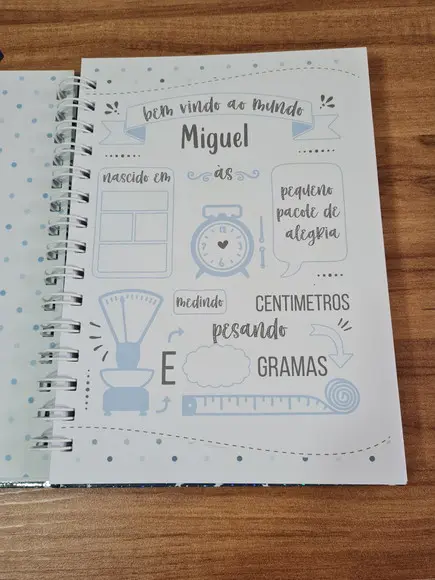 bem vindo ao mundo
Miguel
nascido em
às
pequeno
pacote de
alegria
medindo
CENTIMETROS
pesando
E
GRAMAS